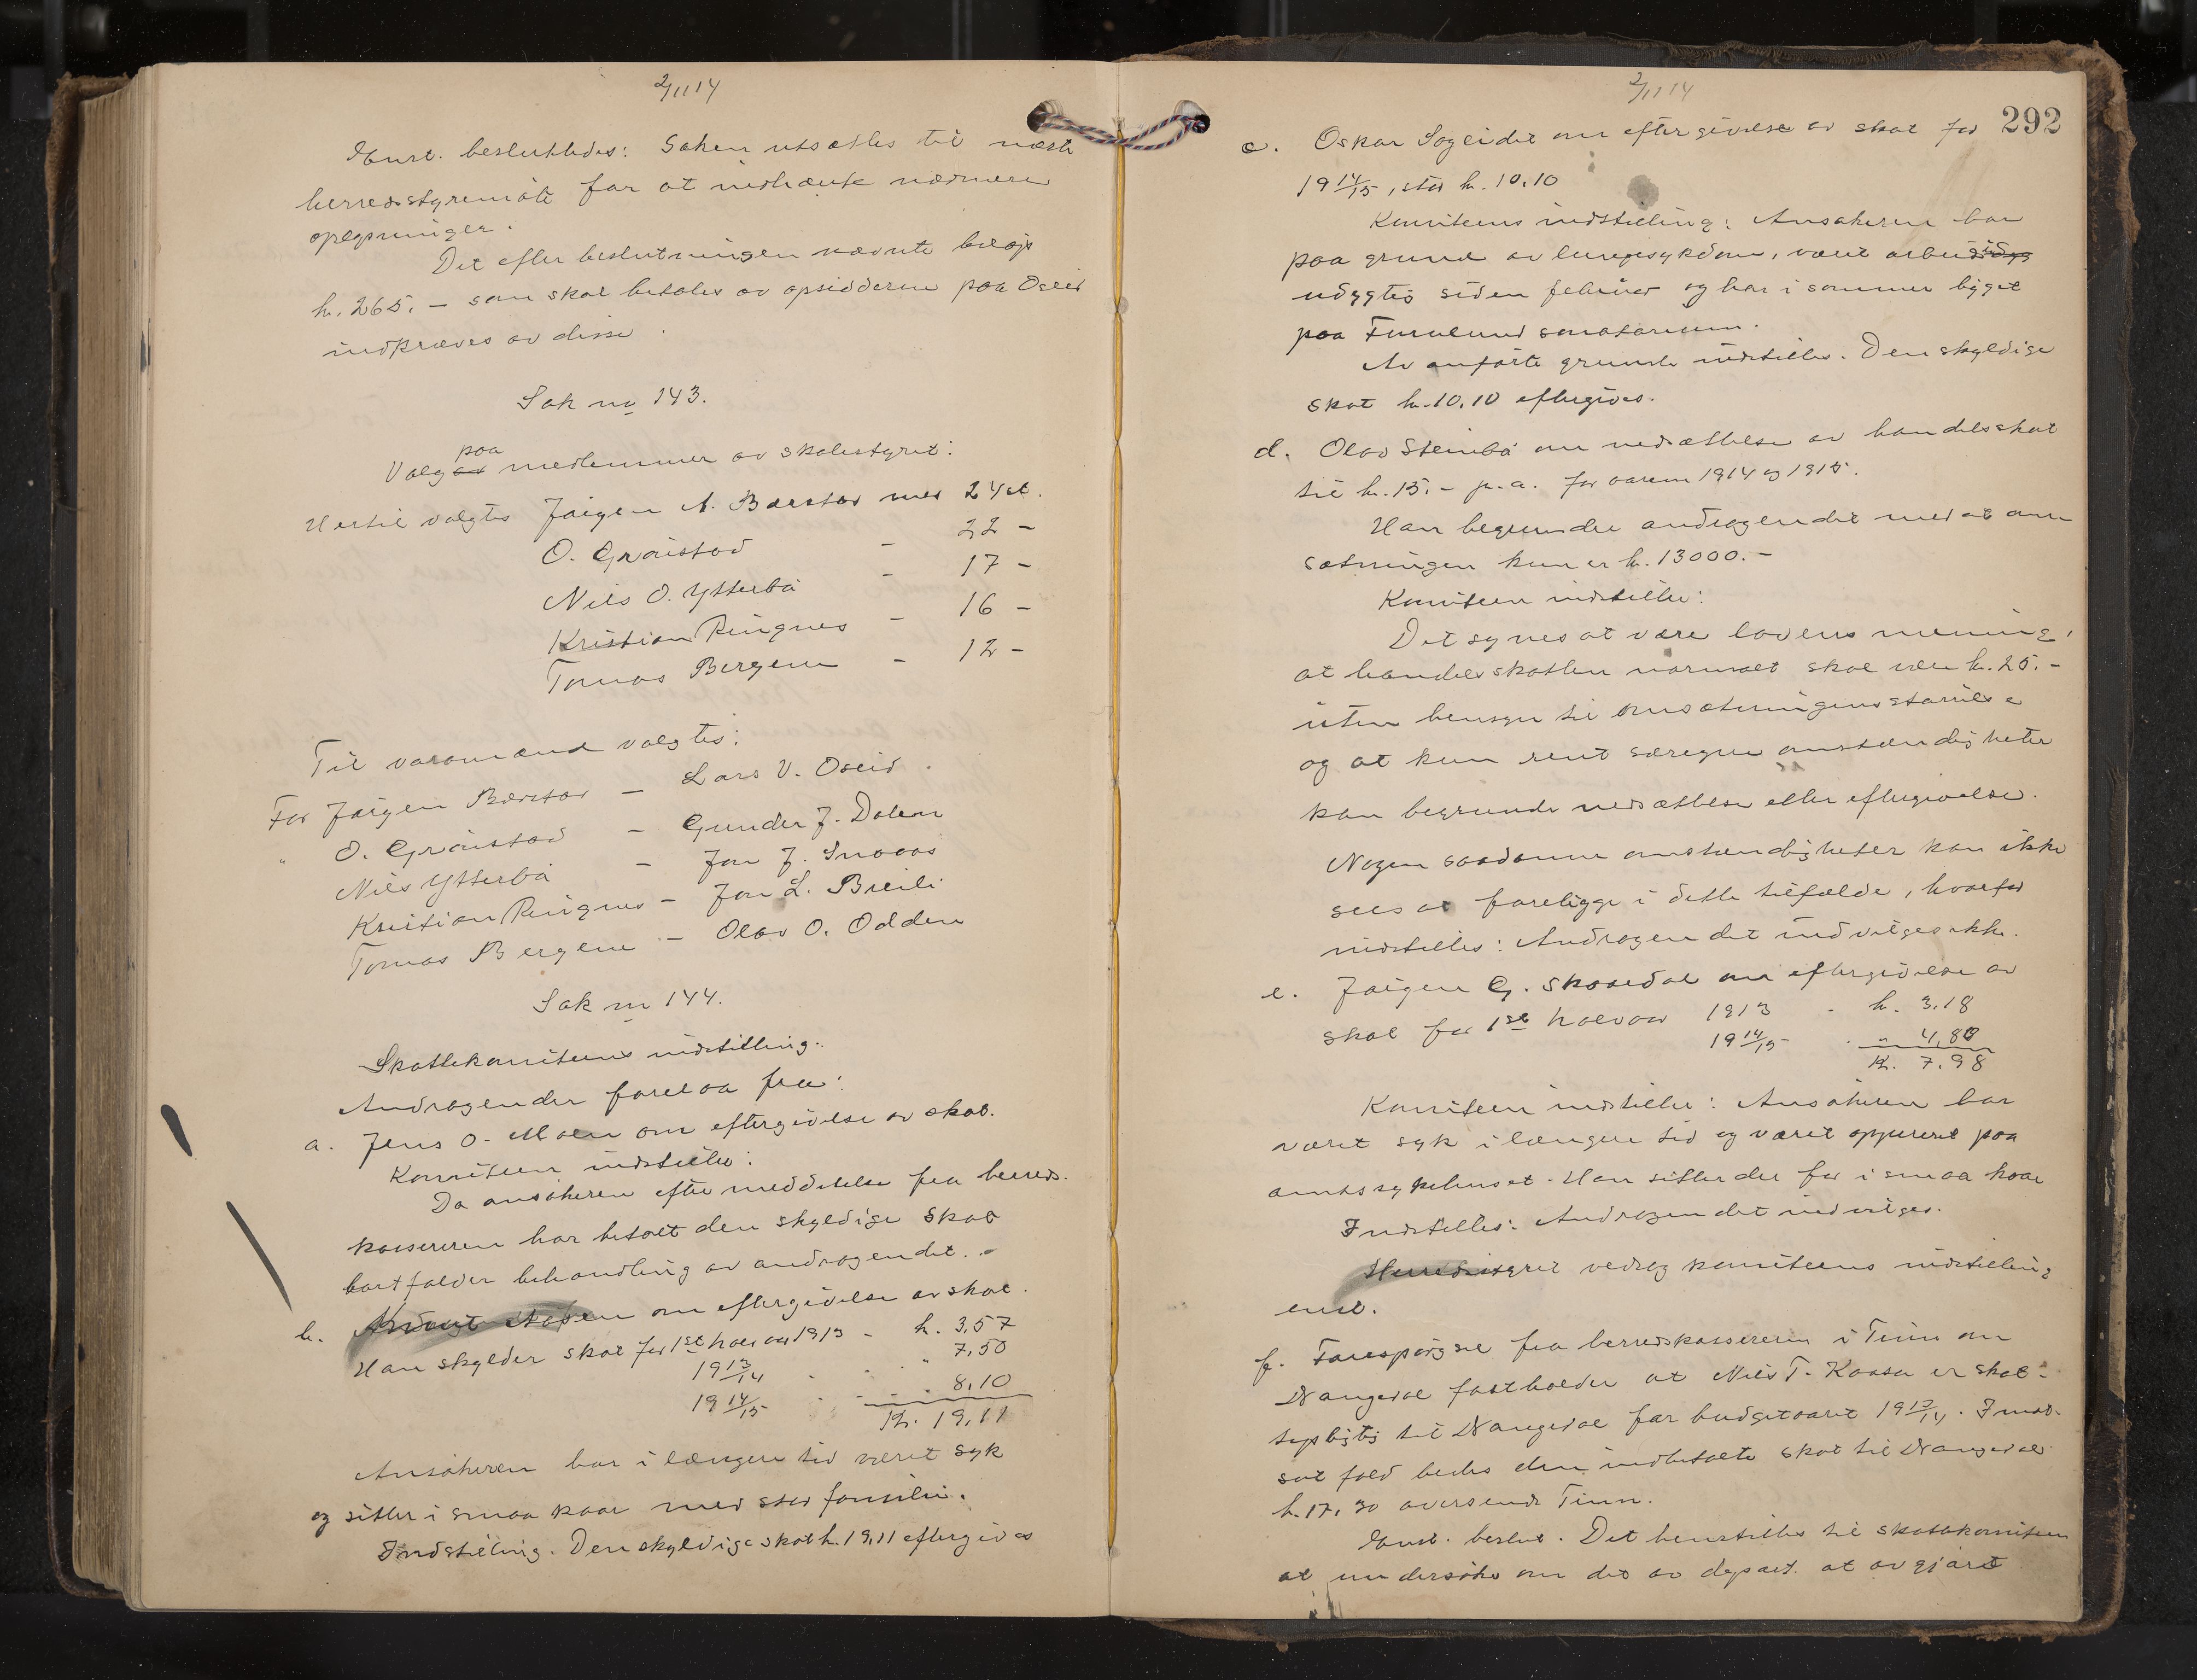 2/11 14
Enst. besluttedes: Saken utsættes til næste
herredsstyremöte for at indhente nærmere
oplysninger.
Det efter beslutningen nævnte beløp
kr. 265.- som skal betales av opsidderne paa Oseid
indkræves av disse.
Sak no 143.
Valg paa medlemmer av skolestyret:
Hertil valgtes Jörgen A. Bærstad med 24 st.
O. Gröistad - 22 -
Nils O. Ytterbö - 17 -
Kristian Ringnes - 16 -
Tomas Bergene - 12 -
Til varamænd valgtes:
For Jörgen Bærstad - Lars V. Oseid.
" O. Gröistad - Gunder J. Dalen
Nils Ytterbö - Jon J. Snoaas
Kristian Ringnes - Jon L. Breili
Tomas Bergene - Olav O. Odden
Sak no 144.
Skattekomiteens indstilling:
Andragender forelaa fra:
a. Jens O. Moen om eftergivelse av skat.
Komiteen indstiller:
Da ansökeren efter meddelelse fra herreds-
kassereren har betalt den skyldige skat
bortfalder behandling av andragendet.
b. om eftergivelse av skat.
Han skylder skat for 1st halvaar 1913 - kr. 3,57
19 13/14 " 7,50
19 14/15 - - - 8,10
Kr. 19,11
Ansökeren har i længere tid været syk
og sitter i smaa kaar med stor familie.
Indstilling. Den skyldige skat kr. 19,11 eftergives
2/11 14
292
c. Oskar Sogeidet om eftergivelse av skat for
19 14/15, stor kr. 10,10
Komiteens indstilling: Ansökeren har
paa grund av lungesykdom, været arbeids
udygtig siden februar og har i sommer ligget
paa Furulund sanatorium.
Av anförte grunde indstilles. Den skyldige
skat kr. 10,10 eftergives.
d. Olav Steinbö om nedsættelse av handelsskat
til kr. 15.- p.a. for aarene 1914 og 1915.
Han begrunder andragendet med at om
sætningen kun er kr. 13000.-
Komiteen indstiller:
Det synes at være lovens mening,
at handelsskatten normalt skal være kr. 25.-
uten hensyn til omsætningens störrelse
og at kun rent særegne omstændigheter
kan begrunde nedsættelse eller eftergivelse.
Nogen saadanne omstændigheter kan ikke
sees at foreligge i dette tilfælde, hvorfor
indstilles: Andragendet indvilges ikke.
e. Jörgen G. Skaardal om eftergivelse av
skat for 1st halvaar 1913 - kr. 3,18
19 14/15 - " 4,80
Kr. 7,98
Komiteen indstiller: Ansökeren har
været syk i længere tid og været oppereret paa
amtssykehuset. Han sitter derfor i smaa kaar
Indstilles: Andragendet indvilges.
Herredsstyret vedtog komiteens indstilling
enst.
f. Forespörgsel fra herredskassereren i Tinn om
Drangedal fastholder at Nils T. Kaasa er skat-
tepligtig til Drangedal for budgetaaret 19 13/14. I mot-
sat fald bedes den indbetalte skat til Drangedal
kr. 17,30 oversendt Tinn.
Enst. beslut. Det henstilles til skattekomiteen
at undersöke om det av depart. at avgjort